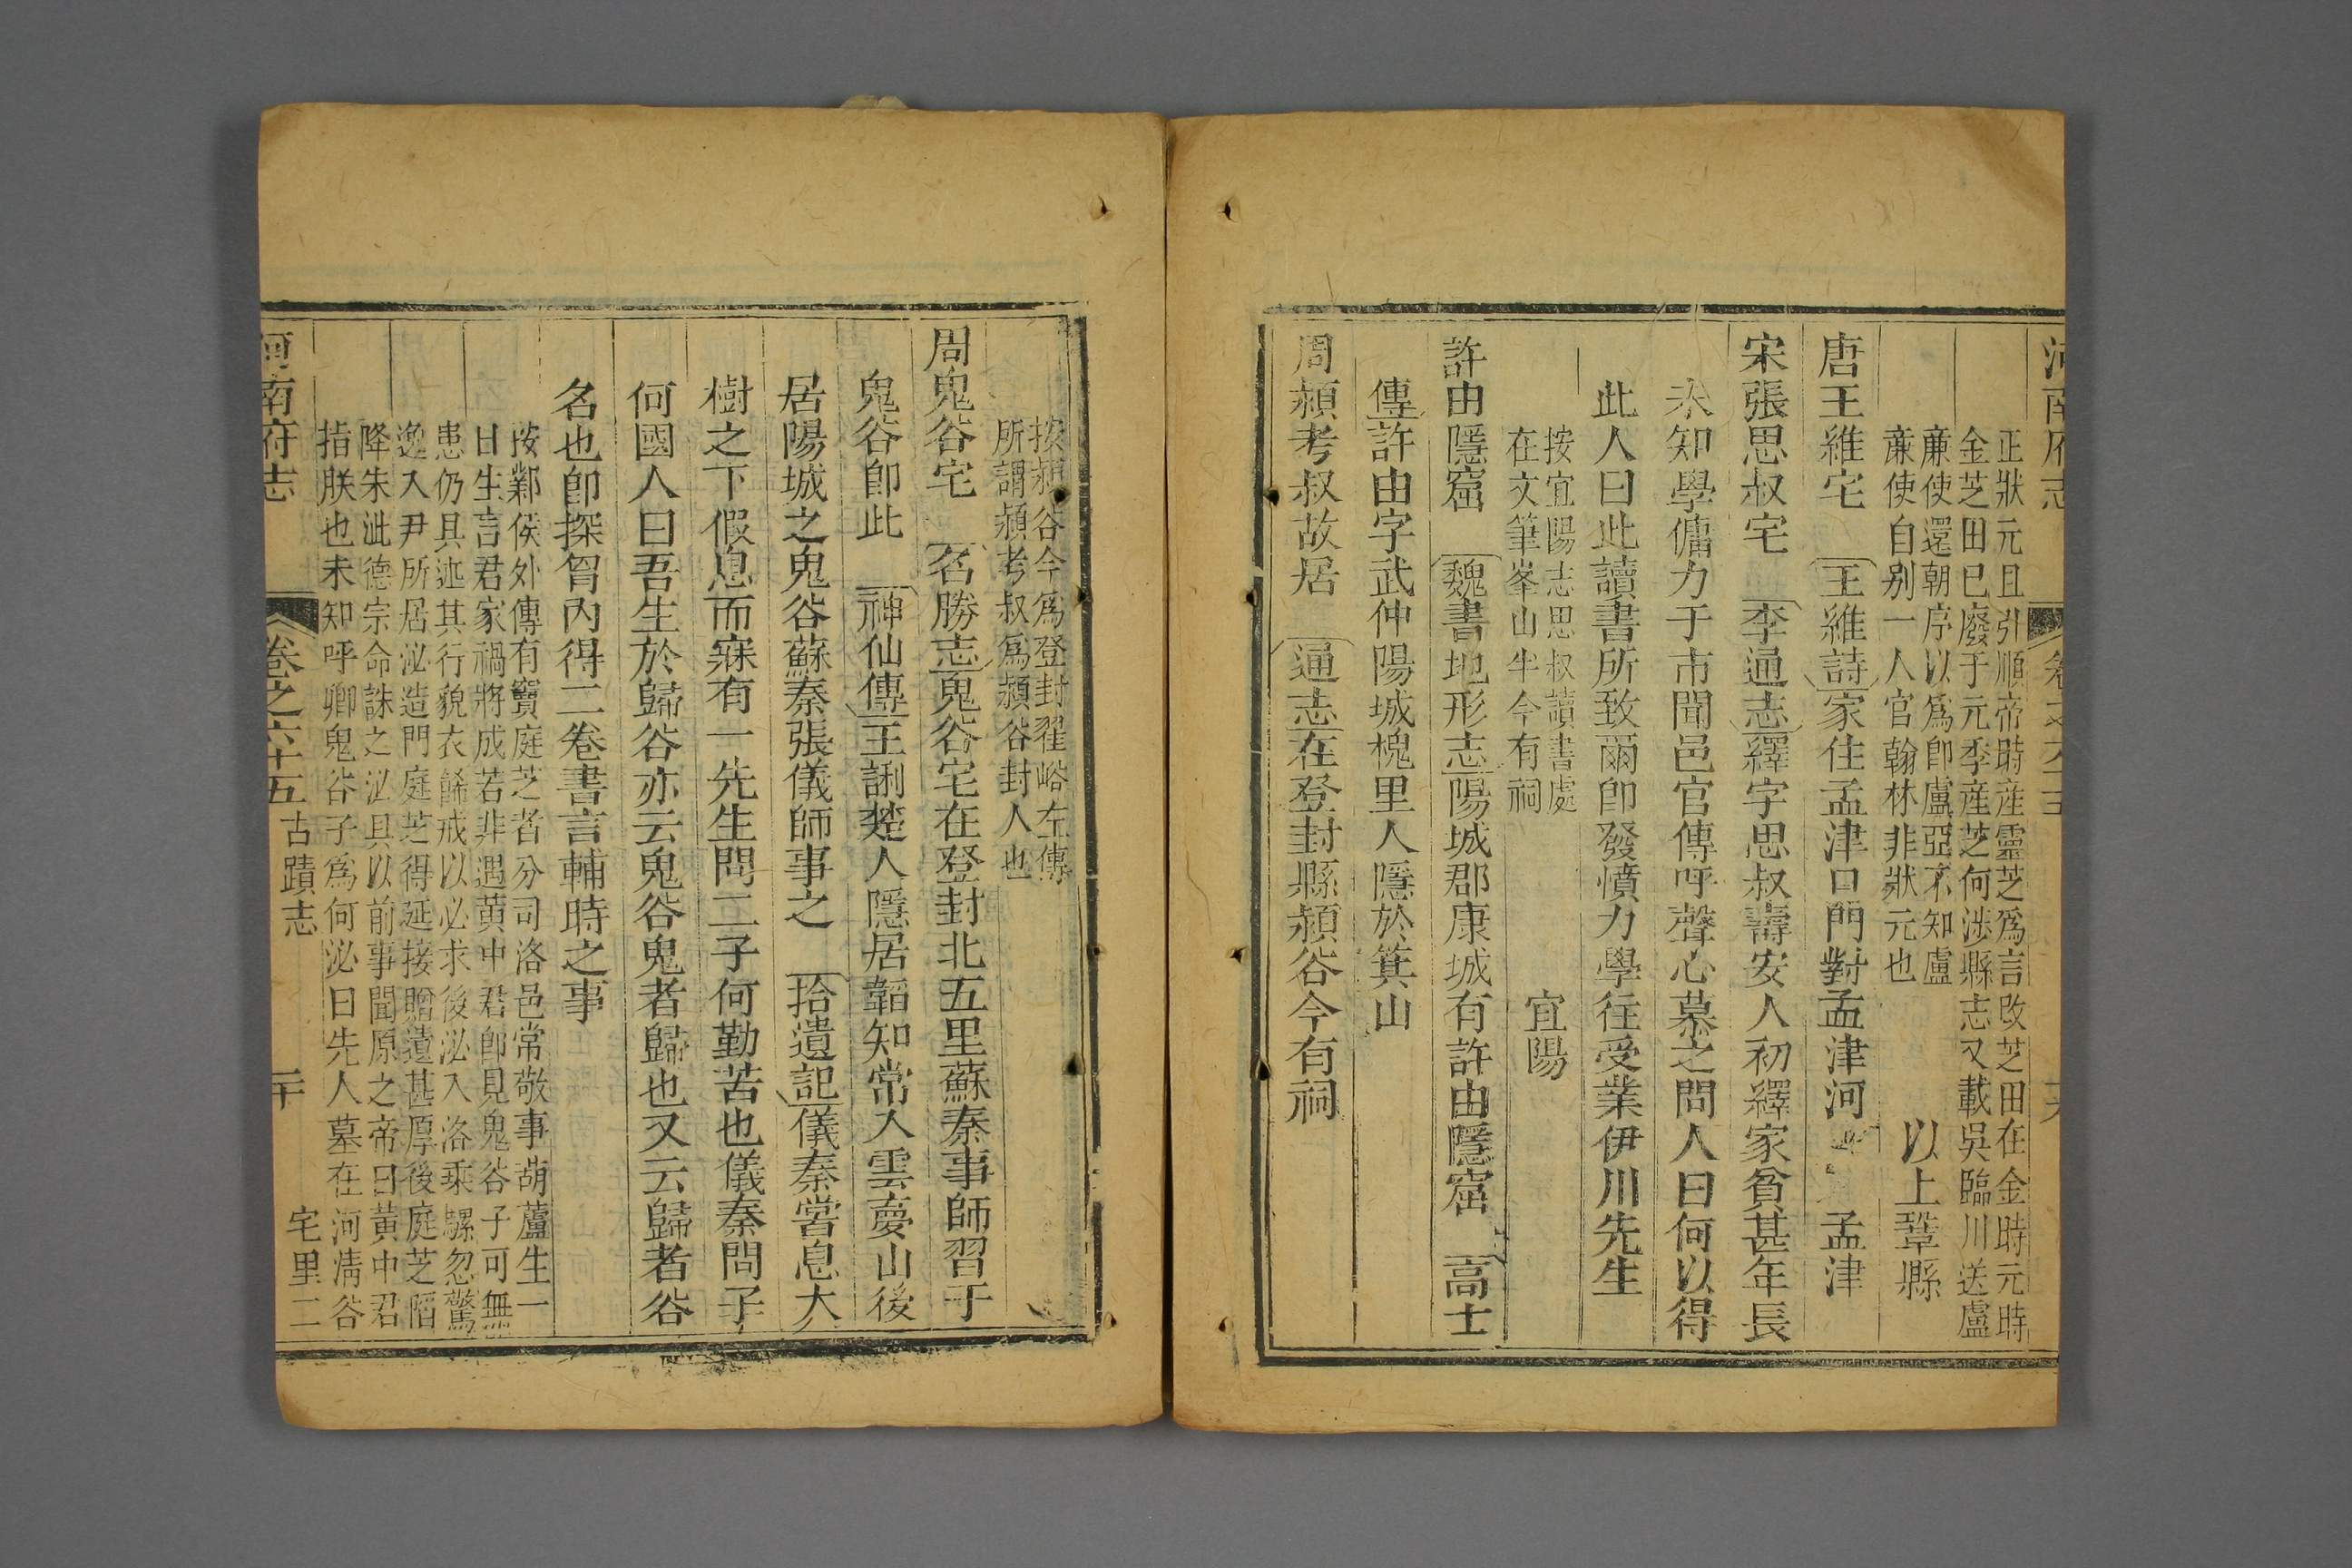 河南府志 卷之六十五
正狀元且引順帝時産靈芝爲言改芝田在金時元時
金芝田已廢于元季産芝何涉縣志又載吳臨川送盧
亷使還朝序以爲卽盧亞不知盧
亷使自别一人官翰林非狀元也 以上鞏縣
唐王維宅 王維詩家住孟津口門對孟津河 孟津
宋張思叔宅 李通志繹字思叔壽安人初繹家貧甚年長
未知學傭力于市聞邑官傳呼聲心慕之問人曰何以得
此人曰此讀書所致爾卽發憤力學往受業伊川先生
按宜陽志思叔讀書處
在文筆峯山半今有祠 宜陽
許由隱窟 魏書地形志陽城郡康城有許由隱窟 高士
傳許由字武仲陽城槐里人隱於箕山
周潁考叔故居 通志在登封縣潁谷今有祠
按潁谷今爲登封翟峪左傳
所謂潁考叔爲潁谷封人也
周鬼谷宅 名勝志鬼谷宅在登封北五里蘇秦事師習于
鬼谷卽此 神仙傳王誗楚人隱居韜知常入雲夣山後
居陽城之鬼谷蘇秦張儀師事之 拾遺記儀秦嘗息大
樹之下假息而寐有一先生問二子何勤苦也儀秦問子
何國人曰吾生於歸谷亦云鬼谷鬼者歸也又云歸者谷
名也卽探胷內得二卷書言輔時之事
按鄴侯外傳有竇庭芝者分司洛邑常敬事葫蘆生一
日生言君家禍將成若非遇黄中君卽見鬼谷子可無
患仍具述其行貌衣餙戒以必求後泌入洛乘騾忽驚
逸入尹所居泌造門庭芝得延接贈遺甚厚後庭芝陷
降朱泚德宗命誅之泌具以前事聞原之帝曰黄中君
指朕也未知呼卿鬼谷子爲何泌曰先人墓在河清谷
河南府志 卷之六十五 古蹟志 宅里二 二十